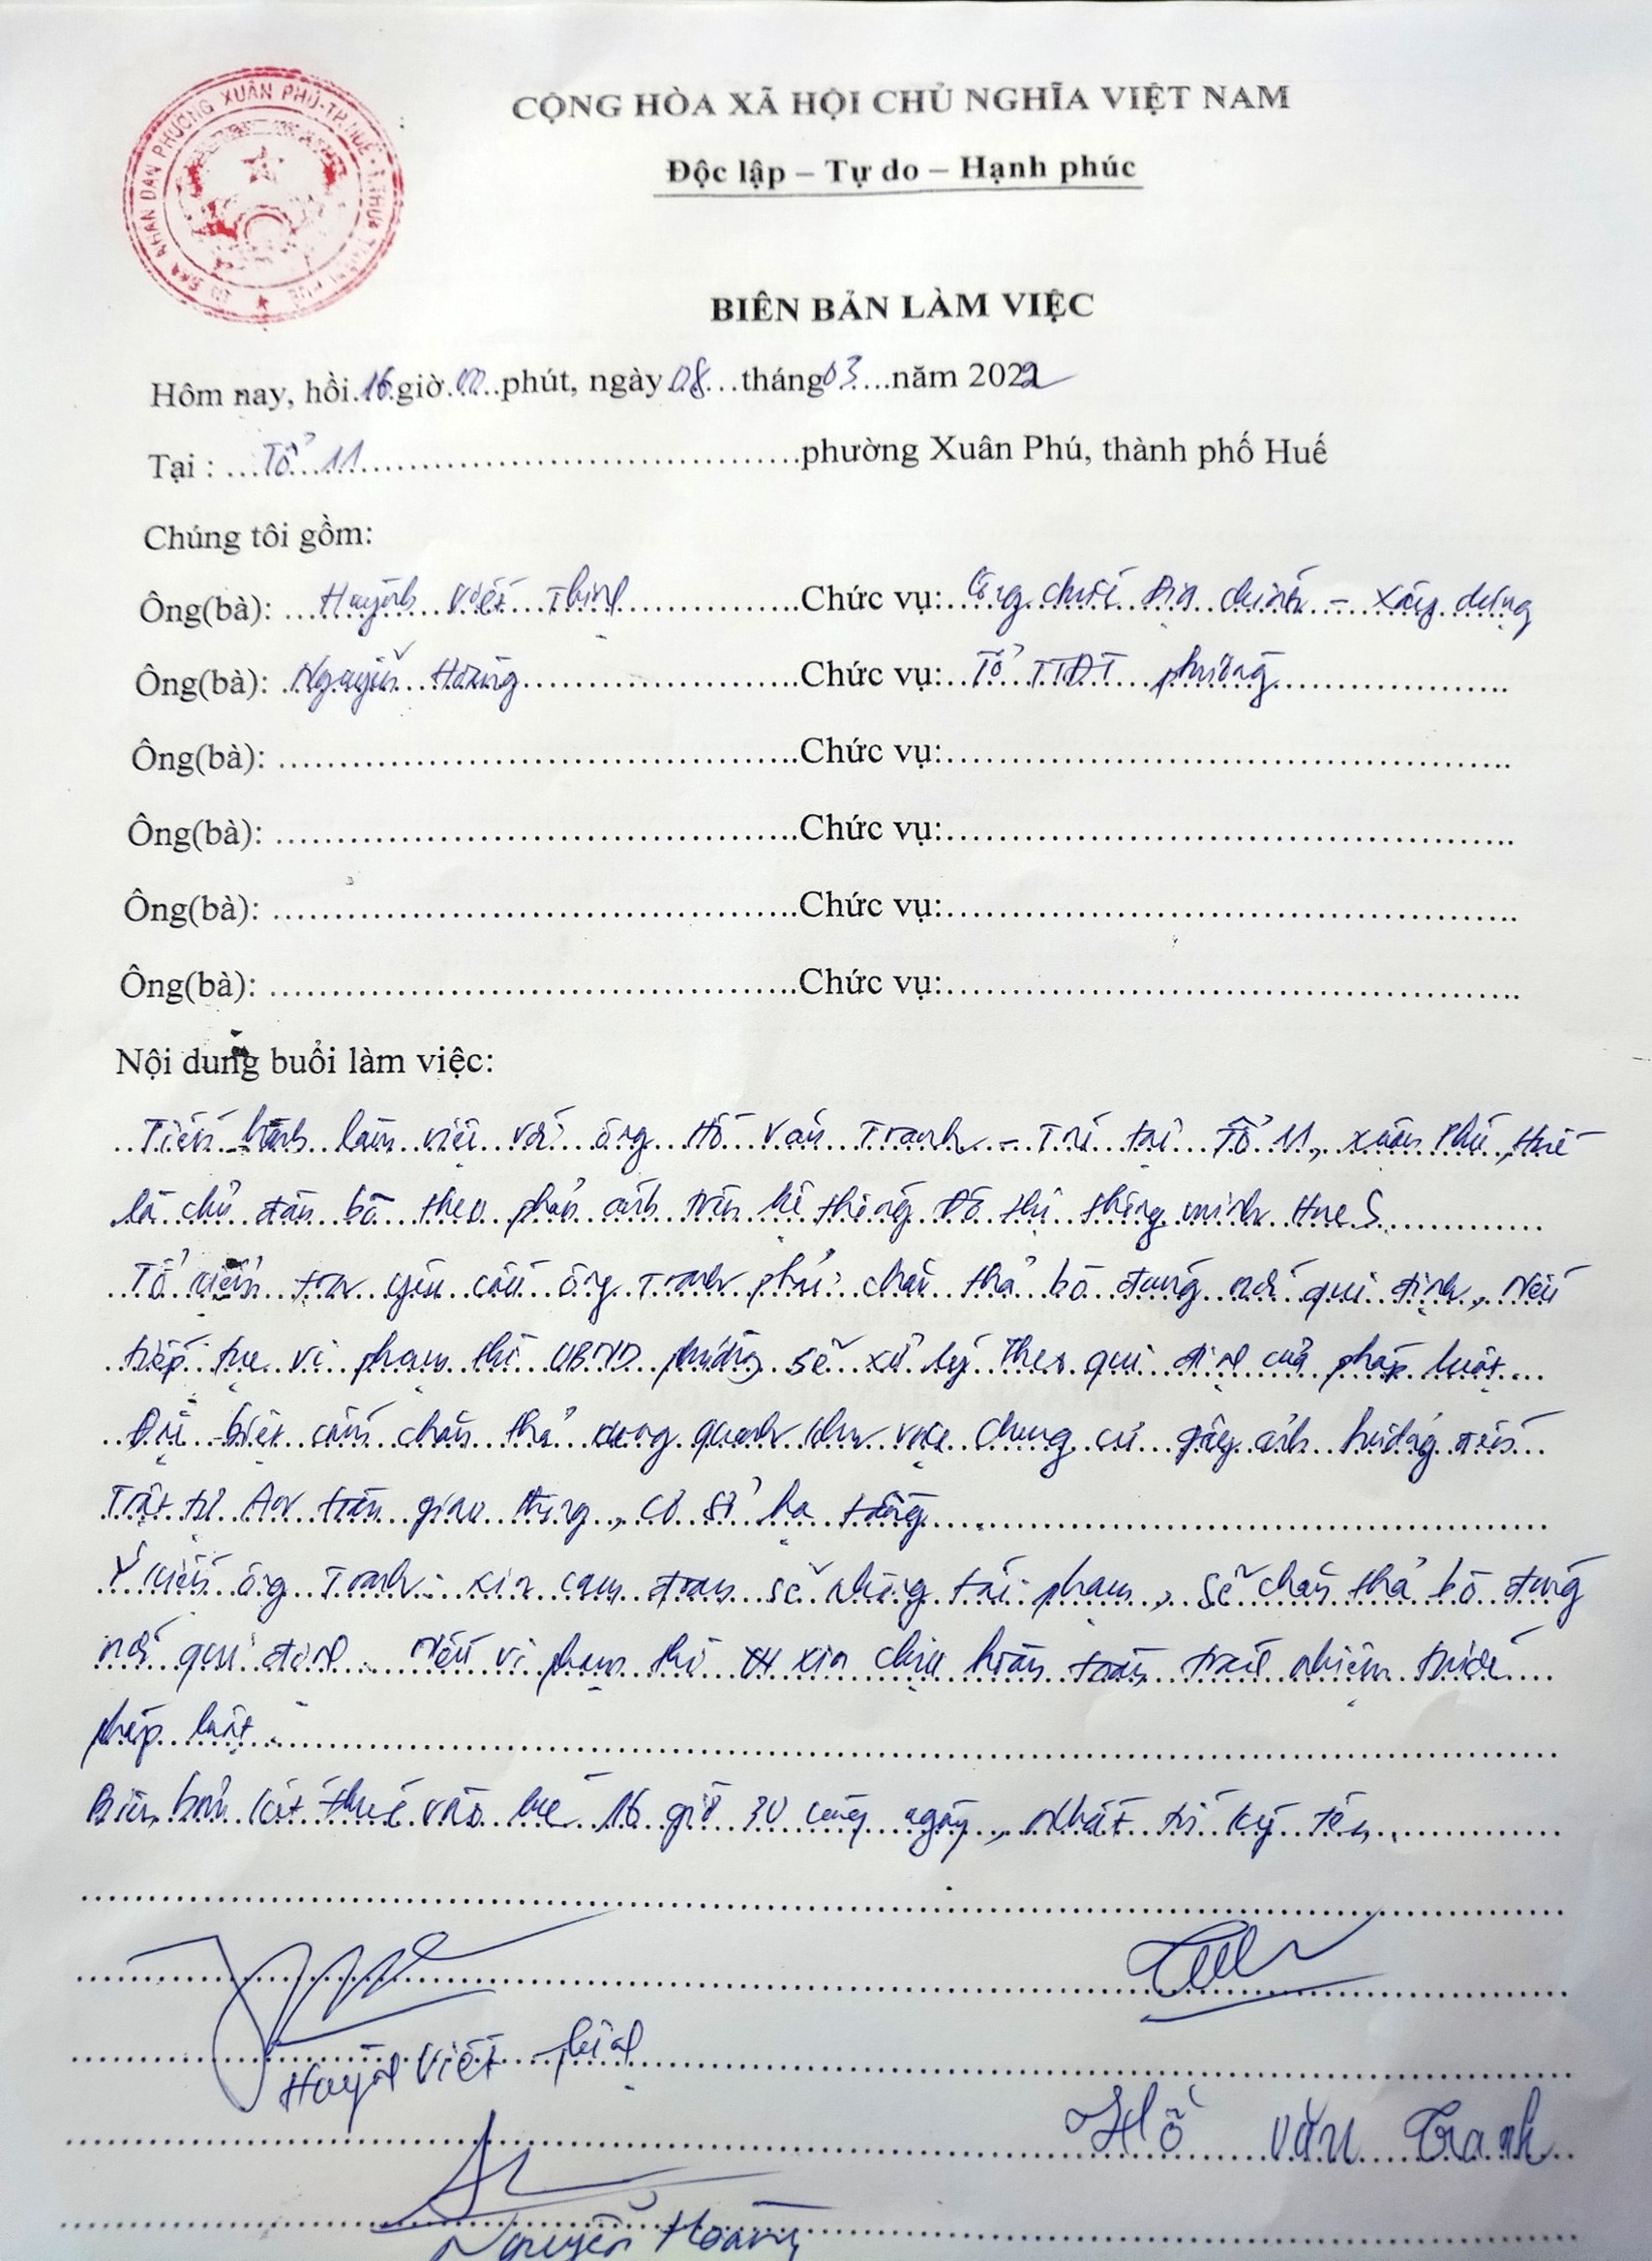 ỦY BAN NHÂN DÂN PHƯỜNG XUÂN PHÚ-TP.HUẾ-T.THỪA THIÊN HUẾ
CỘNG HÒA XÃ HỘI CHỦ NGHĨA VIỆT NAM
Độc lập – Tự do – Hạnh phúc
BIÊN BẢN LÀM VIỆC
Hôm nay, hồi 16 giờ 00 phút, ngày 08 tháng 03 năm 2022
Tại : Tổ 11 phường Xuân Phú, thành phố Huế
Chúng tôi gồm:
Ông(bà): Huỳnh Viết Thịnh Chức vụ: Công chức Địa chính – Xây dựng
Ông(bà): Nguyễn Hoàng Chức vụ: Tổ TTĐT phường
Ông(bà): Chức vụ:
Ông(bà): Chức vụ:
Ông(bà): Chức vụ:
Ông(bà): Chức vụ:
Nội dung buổi làm việc:
Tiến hành làm việc với ông Hồ Văn Tranh - Trú tại Tổ 11, Xuân Phú, Huế
là chủ đàn bò theo phản ánh trên hệ thống Đô thị thông minh Hue S.
Tổ kiểm tra yêu cầu ông Tranh phải chăn thả bò đúng nơi qui định, Nếu
tiếp tục vi phạm thì UBND phường sẽ xử lý theo qui định của pháp luật.
Đặc biệt cấm chăn thả xung quanh khu vực chung cư gây ảnh hưởng đến
Trật tự An toàn giao thông, cơ sở hạ tầng.
Ý kiến ông Tranh: xin cam đoan sẽ không tái phạm, sẽ chăn thả bò đúng
nơi qui định. Nếu vi phạm thì xin chịu hoàn toàn trách nhiệm trước
pháp luật.
Biên bản kết thúc vào lúc 16 giờ 30 cùng ngày, nhất trí ký tên.
Huỳnh Viết Thịnh
Hồ Văn Tranh
Nguyễn Hoàng